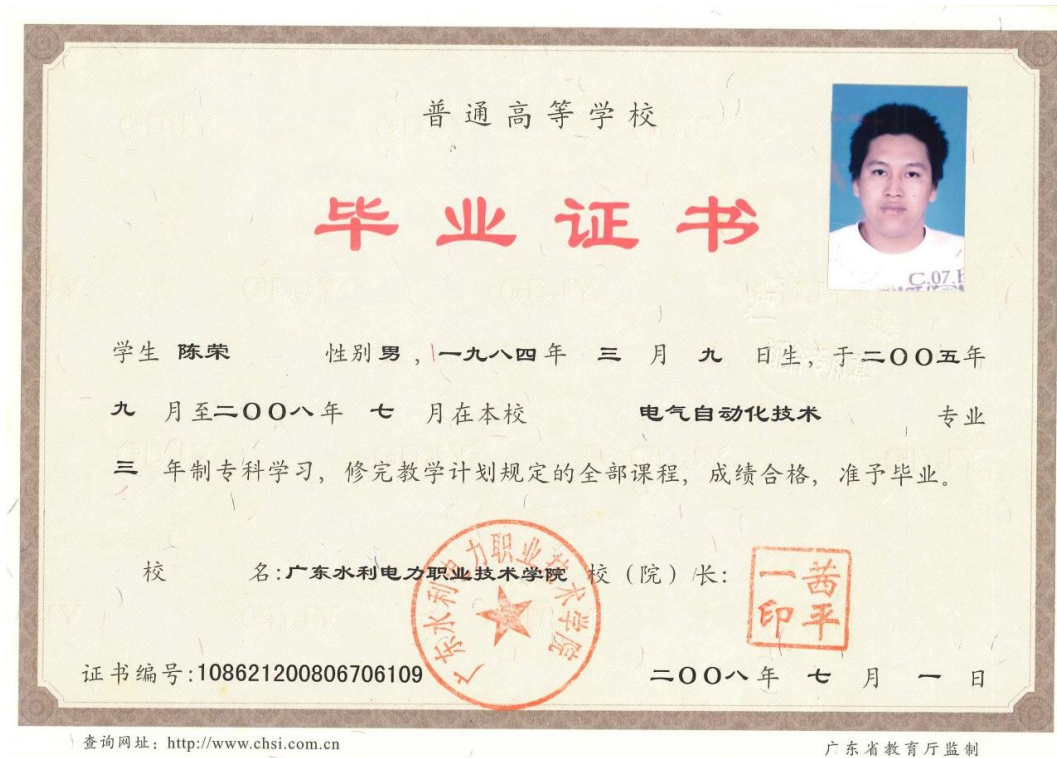 普通高等学校
毕业证书
C.07.
学生 陈荣 性别 男 , 一九八四年 三 月 九 日生, 于二〇〇五年
九 月至二〇〇八年 七 月在本校 电气自动化技术 专业
三 年制专科学习, 修完教学计划规定的全部课程, 成绩合格, 准予毕业。
校 名:广东水利电力职业技术学院 校(院)长:
广东水利电力职业技术学院
茜平
一印
证书编号:108621200806706109 二〇〇八年 七 月 一 日
查询网址: http://www.chsi.com.cn 广东省教育厅监制